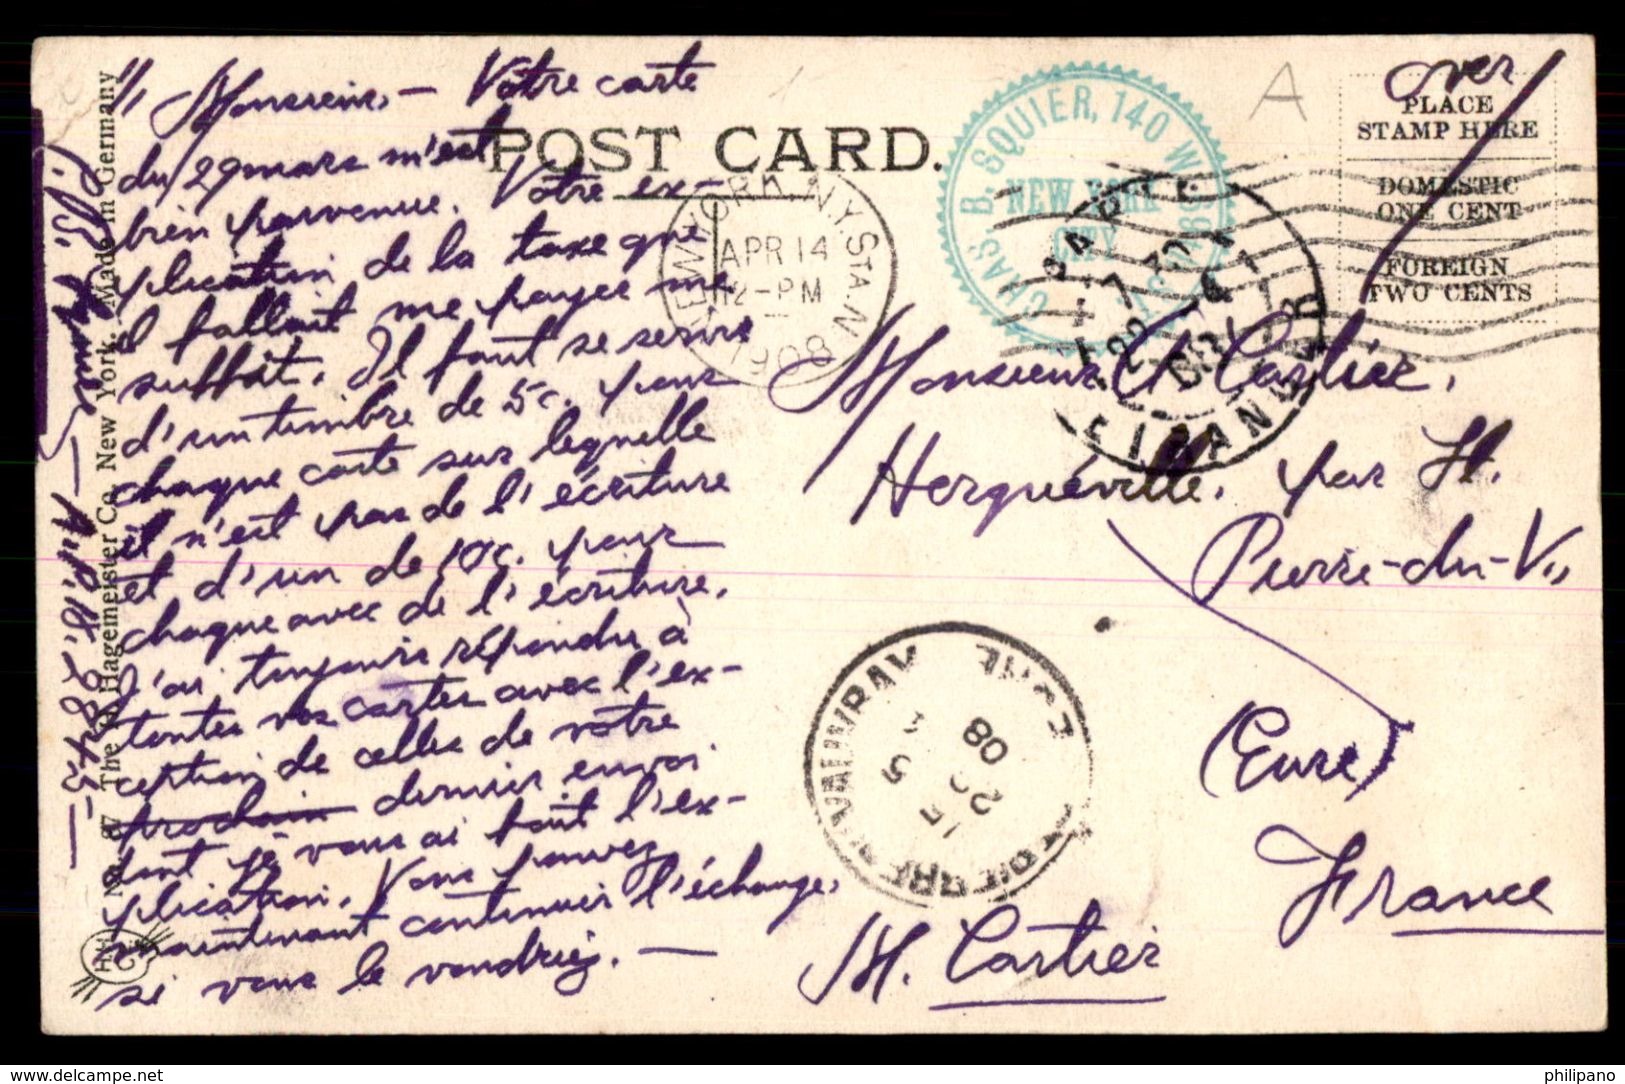 over
11, Monsieur, — Vôtre carte
du 29 mars m'est
bien parvenue. Vôtre ex-
plication de la taxe que
il fallait me payer me
suffit. Il faut se servir
d'un timbre de 5c. pour
chaque carte sur lequelle
il n'est pas de l'écriture
et d'un de 10c. pour
chaque avec de l'écriture.
J'ai toujours répondu à
toutes vos cartes avec l'ex-
ception de celles de vôtre
prochain dernier envoi
dont je vous ai fait l'ex-
plication. Vous pouvez
maintenant continuer l'échange,
si vous le voudriez. —
POST CARD.
PLACE
STAMP HERE
DOMESTIC
ONE CENT
FOREIGN
TWO CENTS
NEW YORK, N.Y. STA. N.
APR 14
12-PM
1908
CHAS. B. SQUIER, 140 W.
NEW YORK
CITY
ETRANGER
Monsieur A Cartier,
Herquéville, par St.
Pierre-du-V,,
(Eure)
France
M. Cartier
08
No. 87 The Hagemeister Co. New York. Made in Germany
28245
philipano
delcampe.net